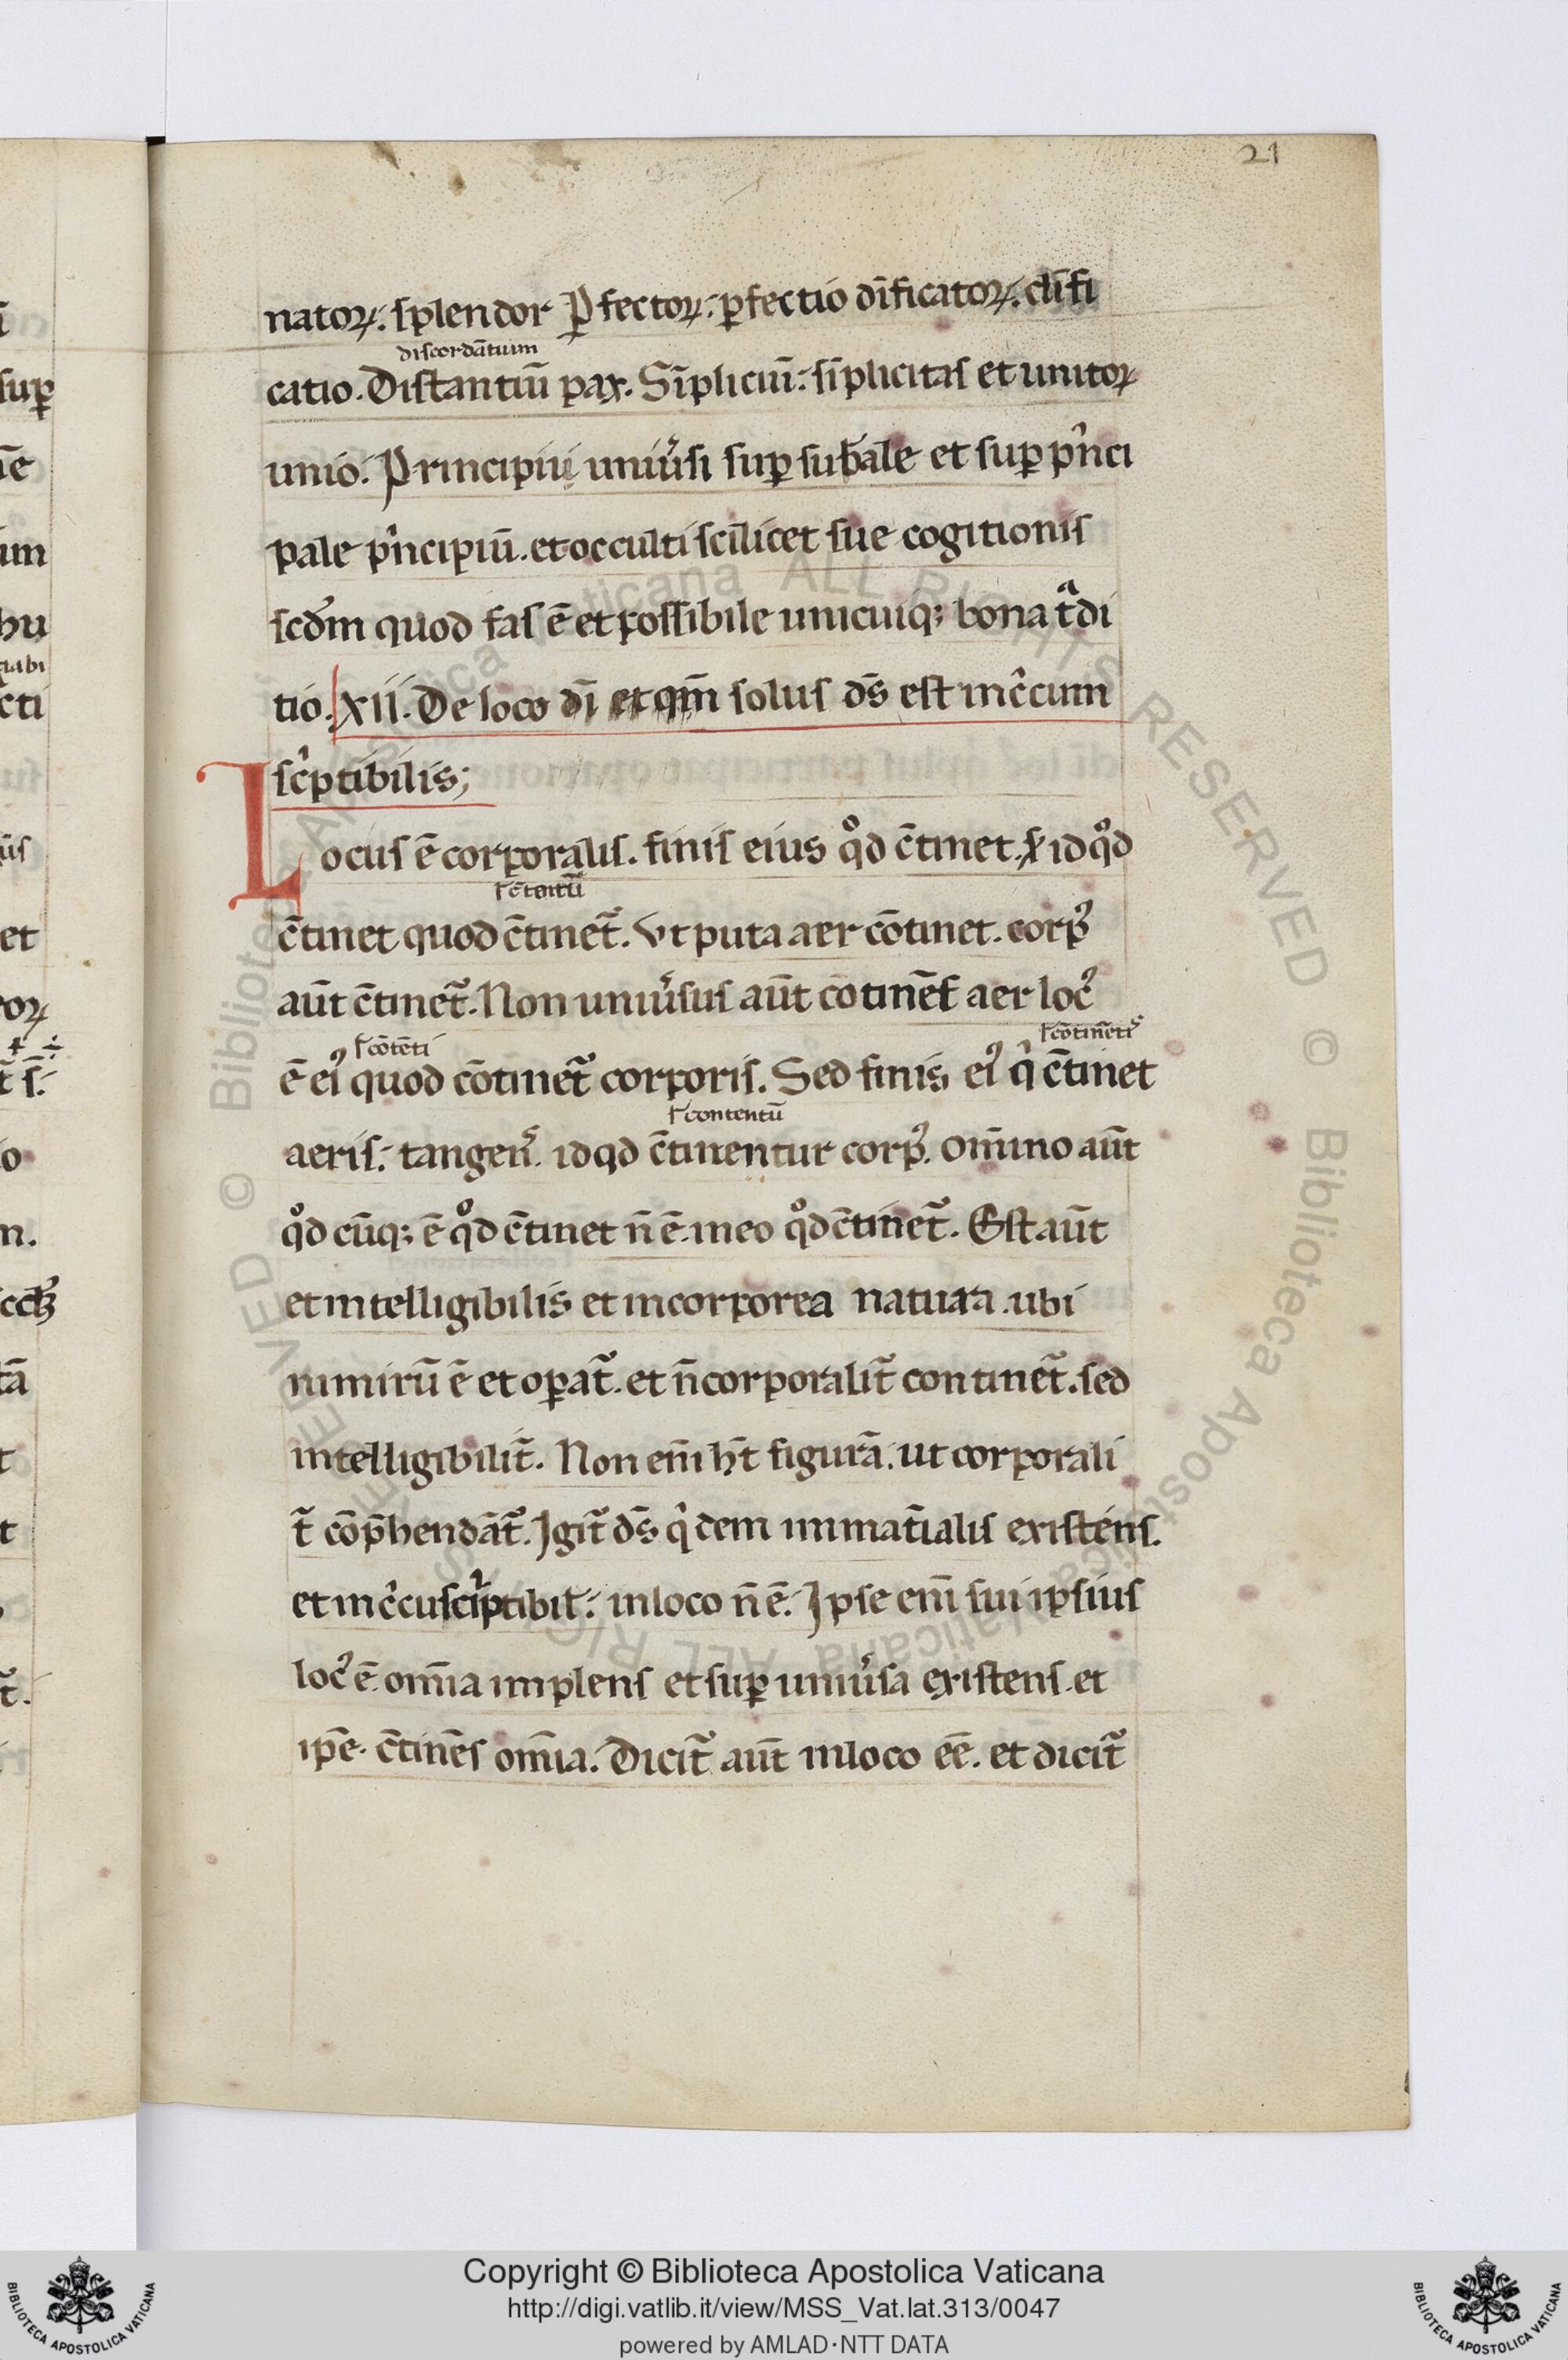 21
natoꝝ. splendor Ꝑfectoꝝ. ꝑfectio dīficatoꝝ. dīfi
discordātium
catio. Distantiū pax. Sīpliciū. sīplicitas et unitoꝝ
unio. Principiū uniũsi suꝑ subale et suꝑ pͥnci
pale pͥncipiū. et occulti scilicet sue cogitionis
scd̄m quod fas ē et possibile unicuiq; bona tͣdi
tio. xii. De loco dī et qm̄ solus ds̄ est inc̄cum
scͥptibilis;
Locus ē corporalis. finis eius qͦd c̄tinet. idqͦd
ł c̄tentū
c̄tinet quod c̄tinet᷑. Ut puta aer cōtinet. corpꝰ
aūt c̄tinet᷑. Non uniũsus aūt cotinēs aer locꝰ
ł cōtēti ł cōtinētis
ē eiꝰ quod cōtinet᷑ corporis. Sed finis eiꝰ qͥ c̄tinet
ł contentū
aeris. tangens. idqd c̄tinentur corpꝰ. omīno aūt
qͦd cūq; ē qͦd c̄tinet n̄ ē. ineo qͦd c̄tinet᷑. Est aūt
et intelligibilis et incorporea natura. ubi
nimirū ē et oꝑat᷑. et n̄ corporalit᷑ continet᷑. sed
intelligibilit᷑. Non eni̅ ht̄ figurā. ut corporali
t᷑ cōp̄hendāt᷑. Igit᷑ ds̄ qͥdem immat̄ialis existens.
et inc̄cuscͥptibil̄. inloco n̄ ē. Ipse eni̅ sui ipsius
locꝰ ē omīa implens et suꝑ uniũsa existens. et
ip̄e. c̄tinēs omīa. Dicit᷑ aūt inloco eē. et dicit᷑
Copyright © Biblioteca Apostolica Vaticana
http://digi.vatlib.it/view/MSS_Vat.lat.313/0047
powered by AMLAD·NTT DATA